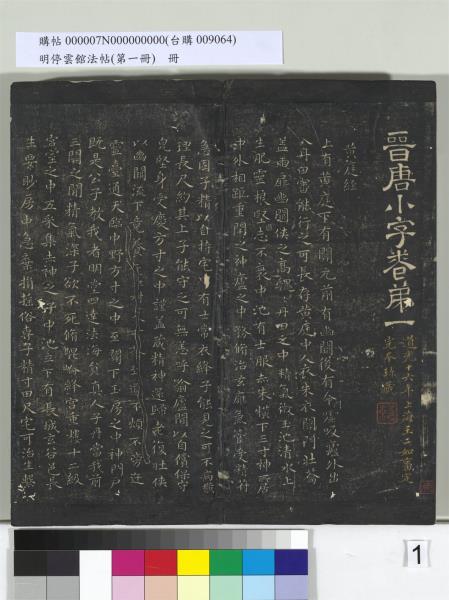 購帖 000007N000000000(台購 009064)
明停雲館法帖(第一冊) 冊
晉唐小字卷第一
黃庭經
上有黃庭下有關元前有幽關後有命門噓吸廬外出
入丹田審能行之可長存黃庭中人衣朱衣關門壯籥
蓋兩扉幽關俠之高魏丹田之中精氣微玉池清水上
生肥靈根堅志不衰中池有士服赤朱橫下三寸神所居
中外相距重閉之神廬之中務脩治玄廱氣管受精符
急固子精以自持宅中有士常衣絳子能見之可不病橫
理長尺約其上子能守之可無恙呼噏廬間以自償保守
完堅身受慶方寸之中謹蓋藏精神還歸老復壯俠
以幽闕流下竟
靈臺通天臨中野方寸之中至關下玉房之中神門戶
既是公子教我者明堂四達法海員真人子丹當我前
三關之間精氣深子欲不死脩崑崙絳宮重樓十二級
宮室之中五采集赤神之子中池立下有長城玄谷邑長
生要眇房中急棄捐搖俗專子精寸田尺宅可治生
1